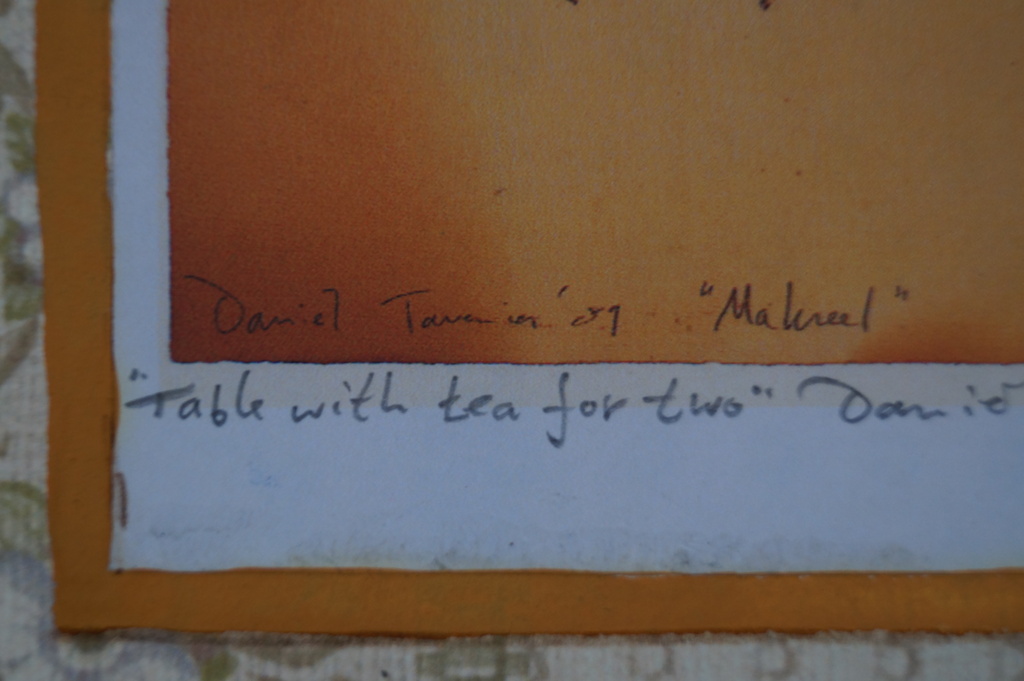 Daniel Tavenier '89 "Makreel"
"Table with tea for two" Danie